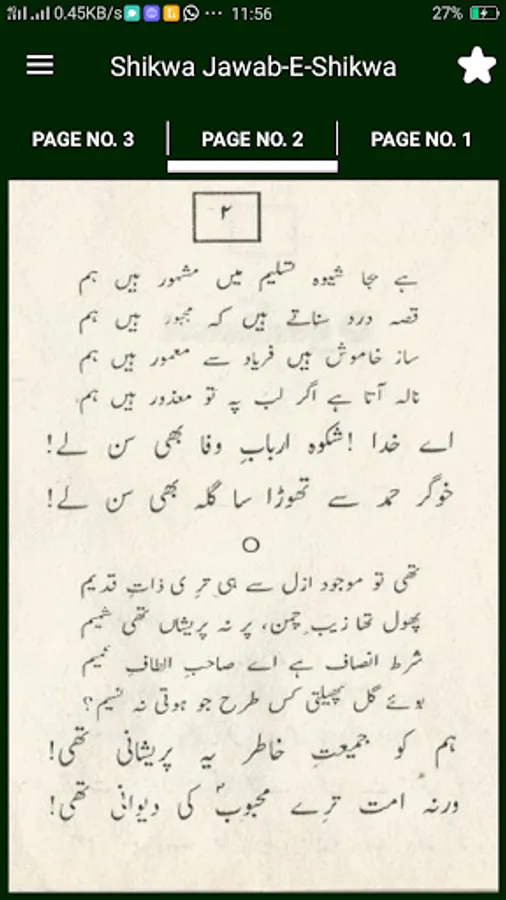 0.45KB/s ... 11:56 27%
Shikwa Jawab-E-Shikwa
PAGE NO. 3 PAGE NO. 2 PAGE NO. 1
۲
ہے بجا شیوہ تسلیم میں مشہور ہیں ہم
قصہ درد سناتے ہیں کہ مجبور ہیں ہم
ساز خاموش ہیں فریاد سے معمور ہیں ہم
نالہ آتا ہے اگر لب پہ تو معذور ہیں ہم
اے خدا! شکوہ اربابِ وفا بھی سن لے!
خوگر حمد سے تھوڑا سا گلہ بھی سن لے!
تھی تو موجود ازل سے ہی ترِی ذاتِ قدیم
پھول تھا زیبِ چمن، پر نہ پریشاں تھی شمیم
شرط انصاف ہے اے صاحبِ الطافِ عمیم
بوئے گل پھیلتی کس طرح جو ہوتی نہ نسیم؟
ہم کو جمیعتِ خاطر یہ پریشانی تھی!
ورنہ امت ترِے محبوبؐ کی دیوانی تھی!